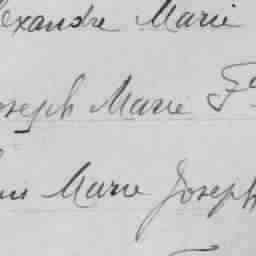 exandre Marie
oseph Marie F
Marie Joseph